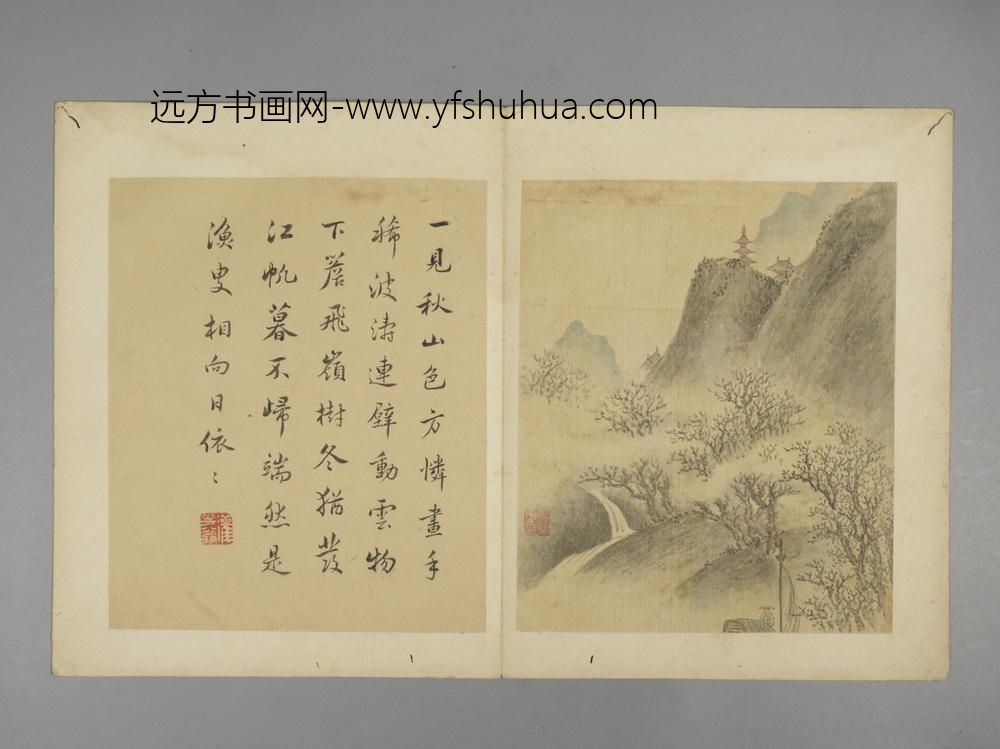 远方书画网-www.yfshuhua.com
一見秋山色方憐畫手
稀波濤連壁動雲物
下簷飛嶺樹冬猶發
江帆暮不歸端然是
漁叟相向日依〻